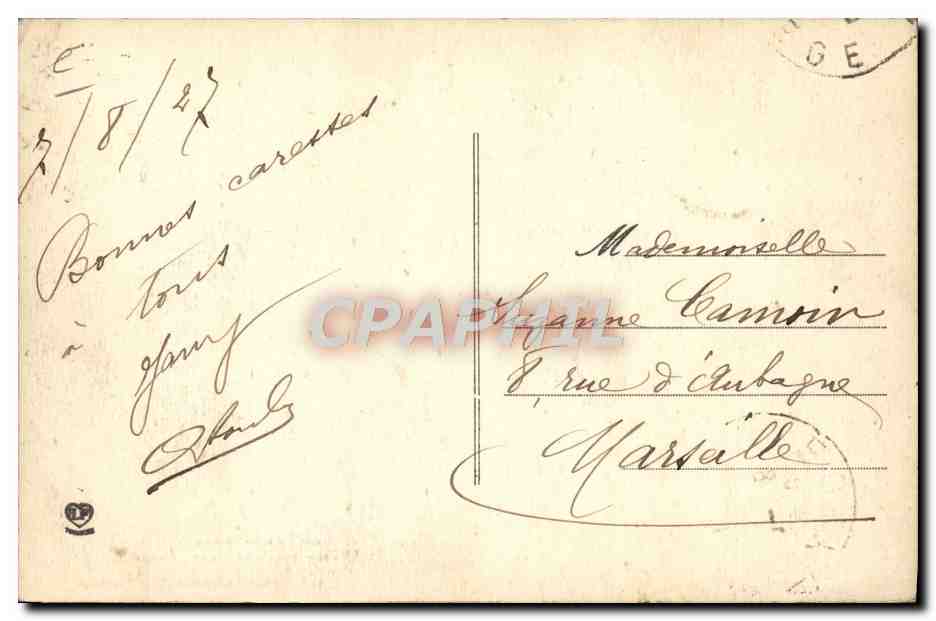 7/8/27
Bonnes caresses
à tous
Mademoiselle
Suzanne Camoin
8, rue d'Aubagne
Marseille
GE
CPAPHIL